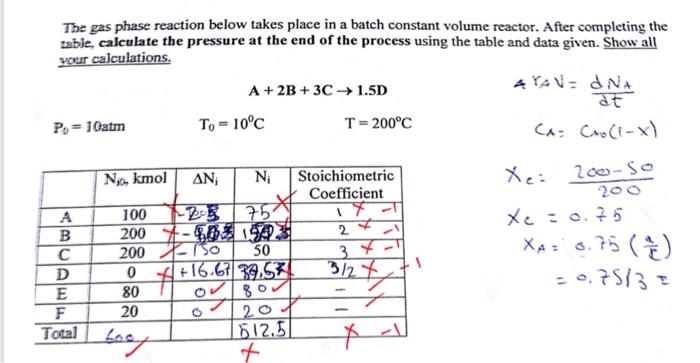 The gas phase reaction below takes place in a batch constant volume reactor. After completing the
table, calculate the pressure at the end of the process using the table and data given. Show all
your calculations.
A + 2B + 3C → 1.5D
P₀ = 10atm T₀ = 10⁰C T = 200⁰C
Nⱼ₀, kmol ΔNⱼ Nⱼ Stoichiometric
Coefficient
A 100 75 1 -1
B 200 2 -1
C 200 -150 50 3 -1
D 0 +16.67 3/2 -1
E 80 0 80 -
F 20 0 20 -
Total 600 512.5 -1
dNA
dt
CA = CA0(1-X)
Xc = 200-50
200
Xc = 0.75
XA = 0.75
= 0.75/3 =